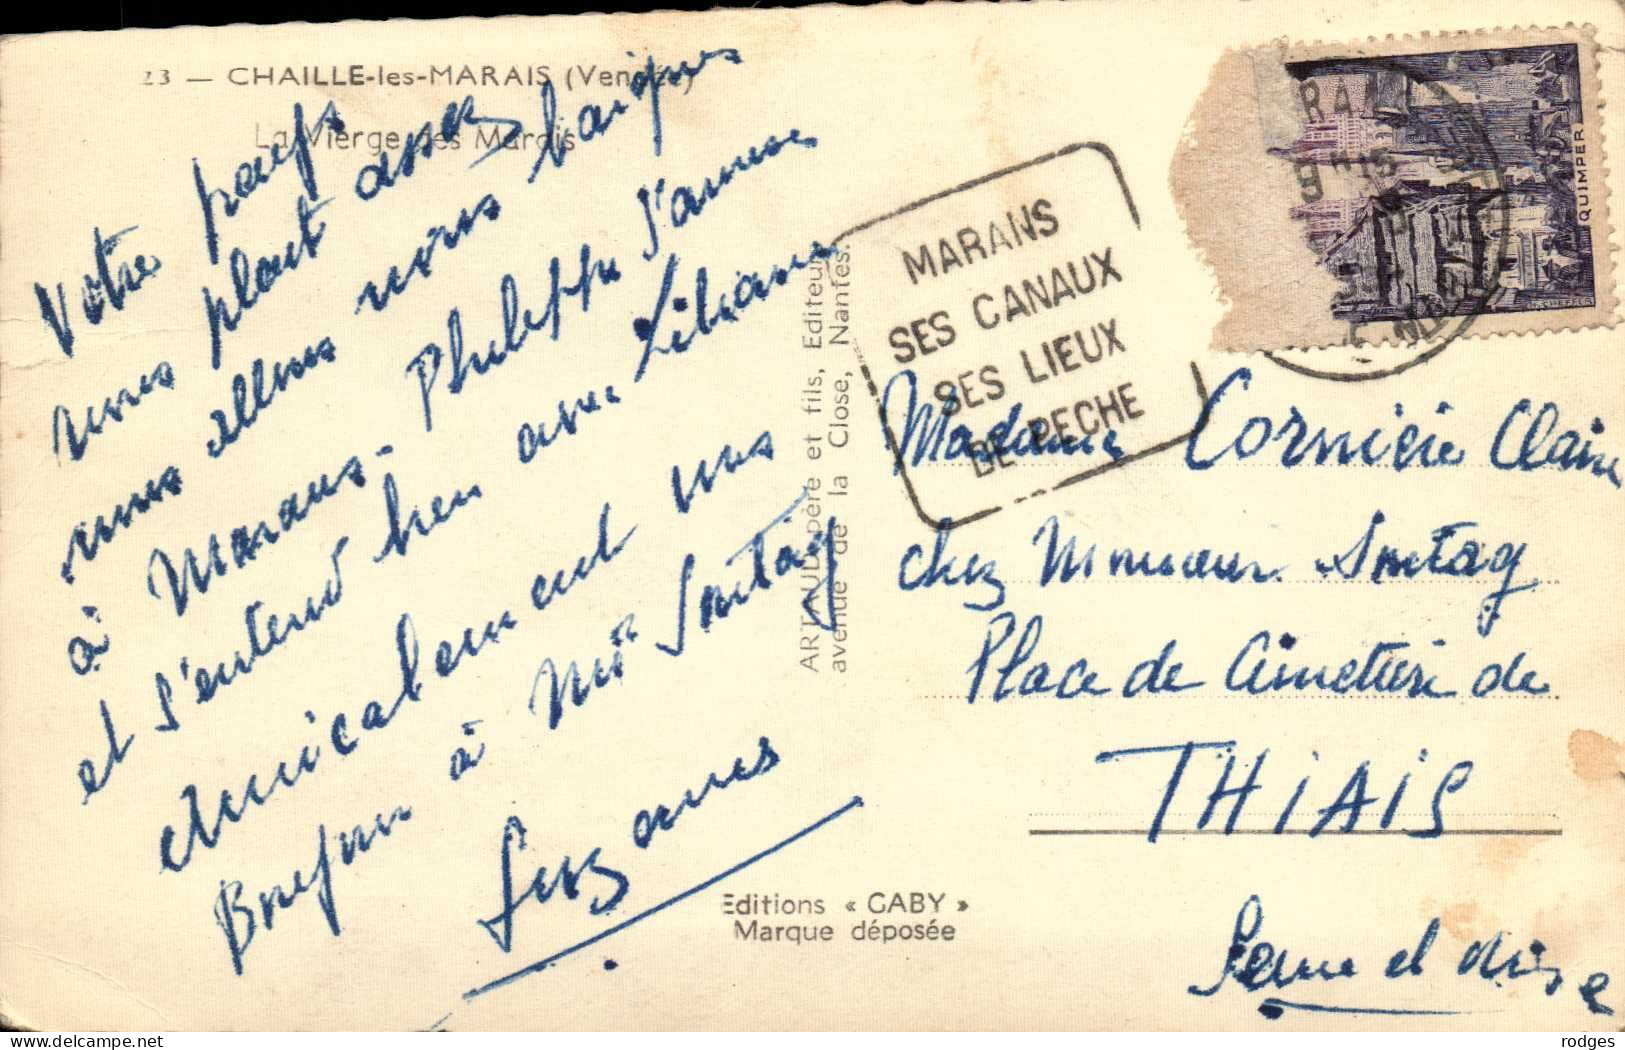 23 — CHAILLE-les-MARAIS (Vendée)
La Vierge des Marais
Votre pays
nous plait assez
nous allons nous baigner
à Marans. Philippe s'amuse
et s'entend bien avec Liliane
Amicalement vous
à Mr Sontag
Suzanne
ARTAUD père et fils, Editeurs
avenue de la Close, Nantes.
Editions « GABY »
Marque déposée
MARANS
SES CANAUX
SES LIEUX
DE PECHE
QUIMPER
Madame Cornière Claire
chez Monsieur Sontag
Place de Cimetière de
THIAIS
Seine et Oise
rodges